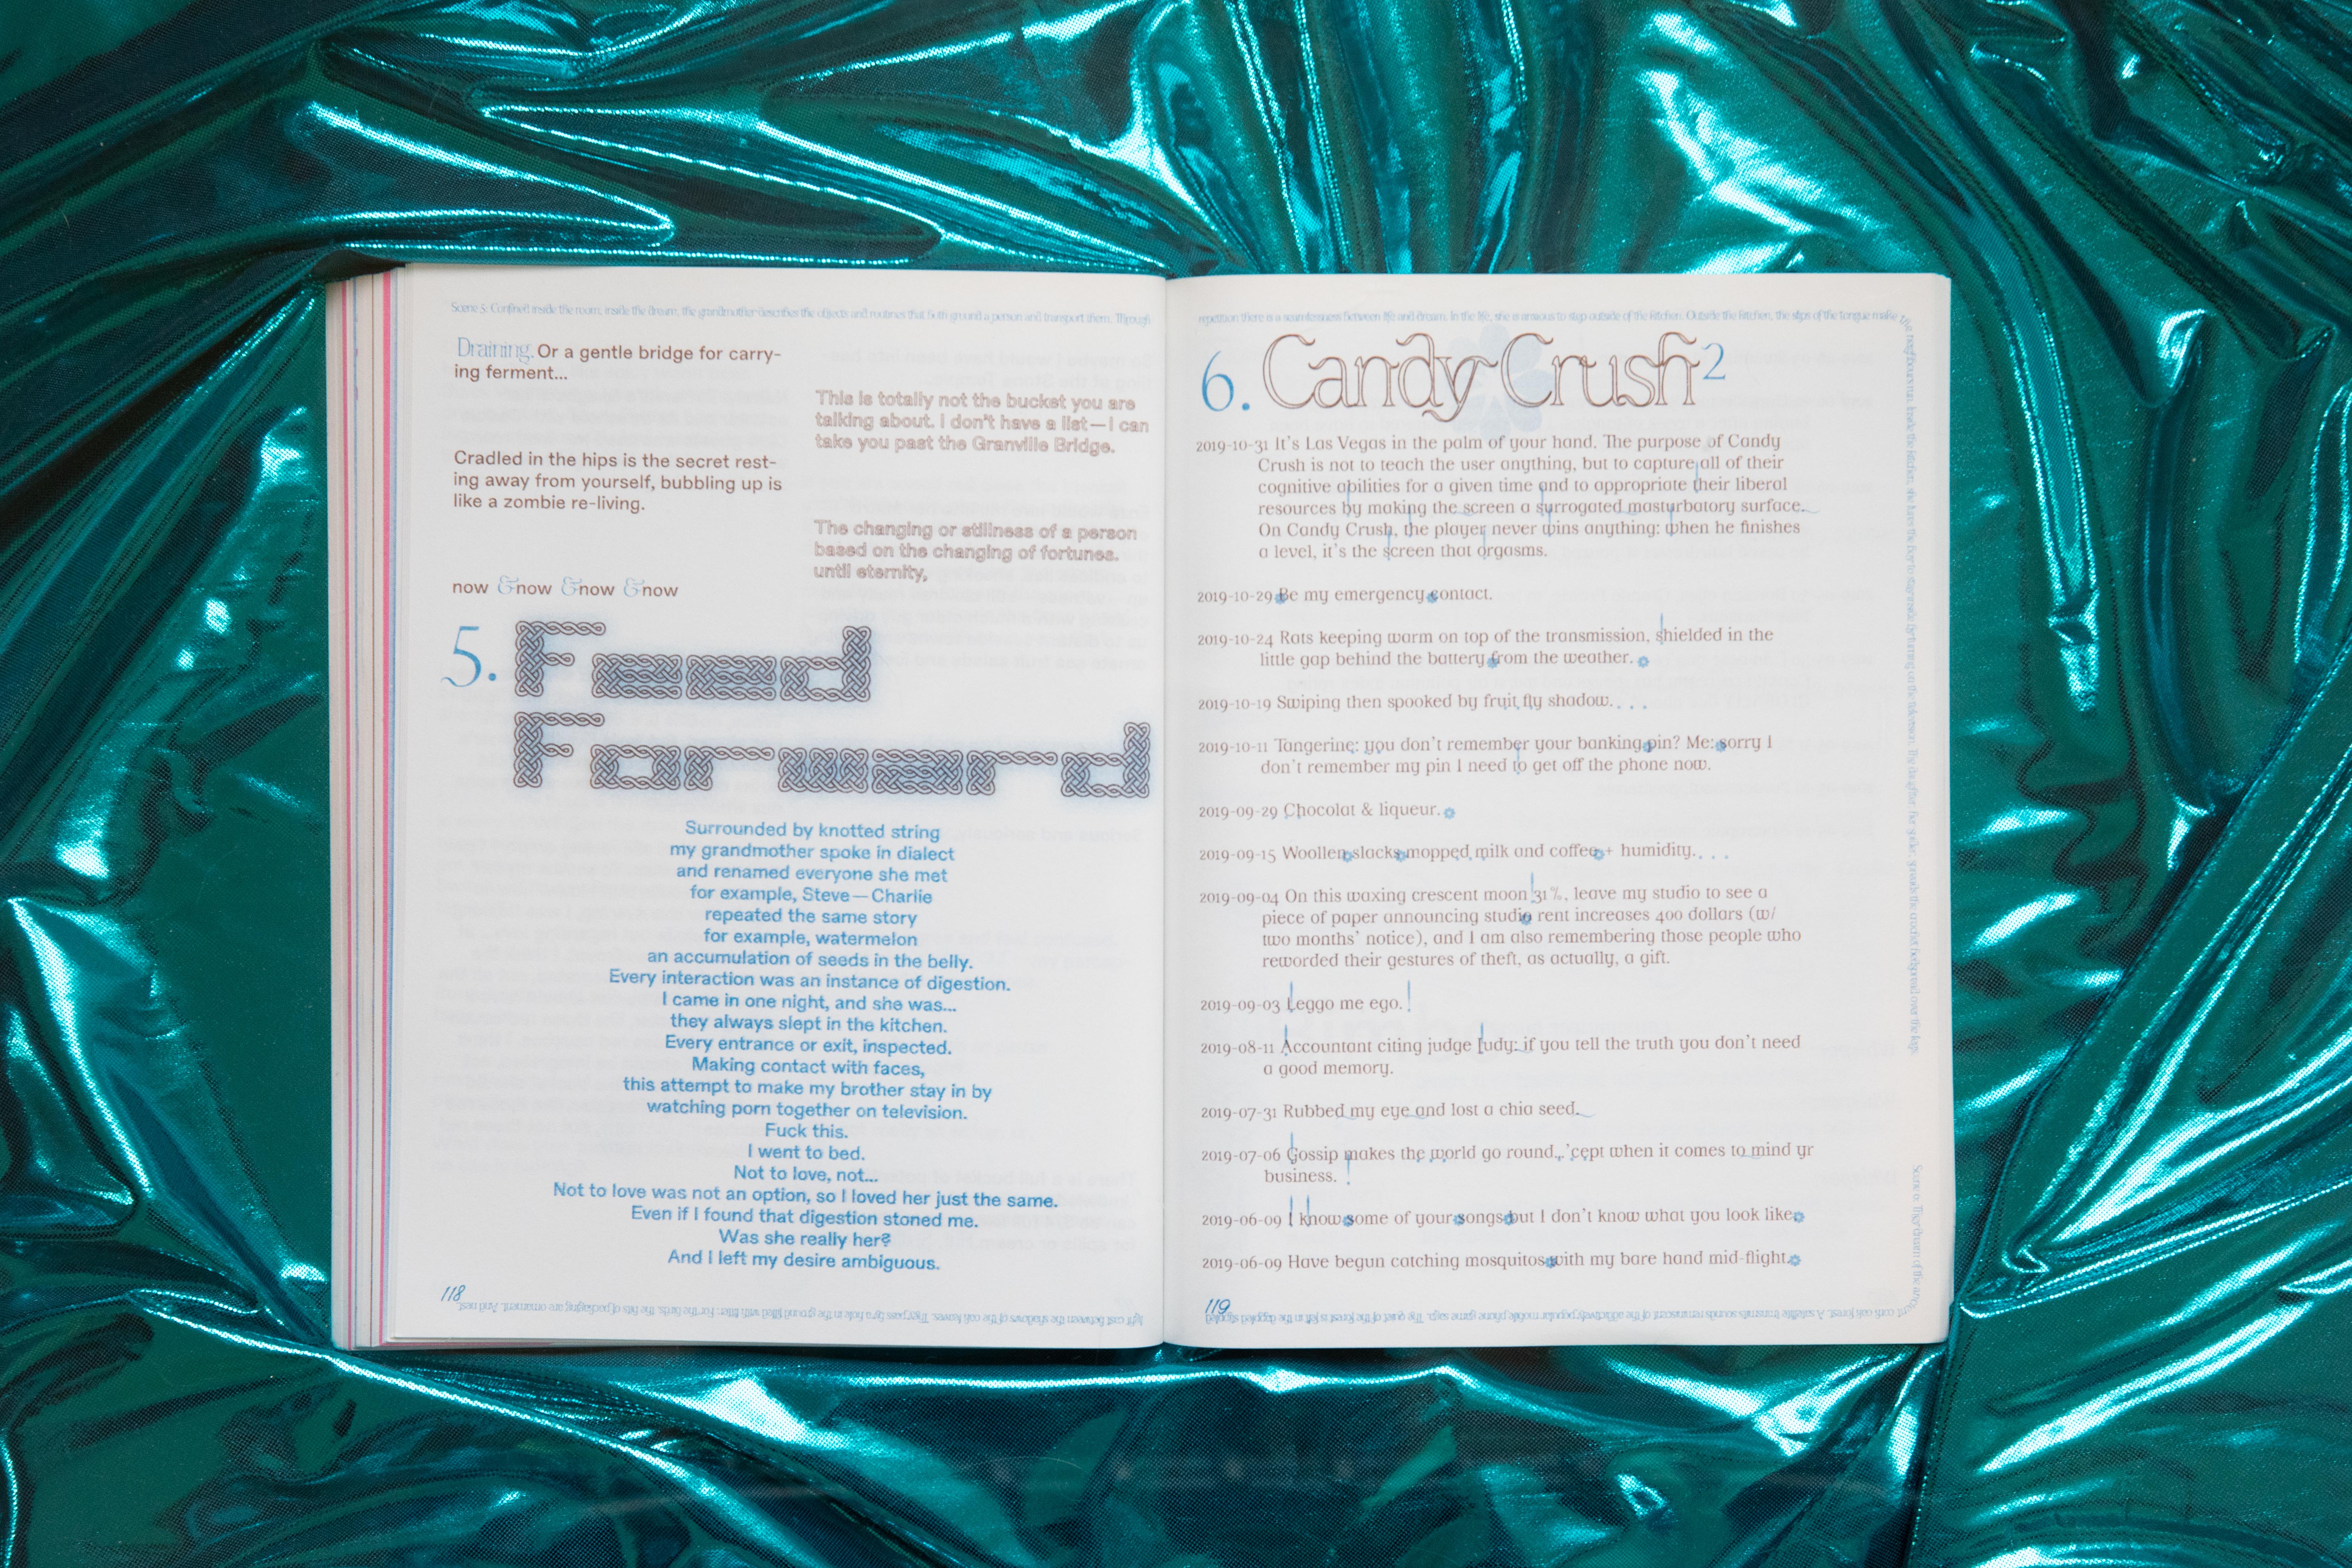 Scene 5: Confined inside the room, inside the dream, the grandmother describes the objects and routines that both ground a person and transport them. Through
Draining. Or a gentle bridge for carry-
ing ferment...
This is totally not the bucket you are
talking about. I don't have a list—I can
take you past the Granville Bridge.
Cradled in the hips is the secret rest-
ing away from yourself, bubbling up is
like a zombie re-living.
The changing or stillness of a person
based on the changing of fortunes.
until eternity,
now & now & now & now
5. Feed
Forward
Surrounded by knotted string
my grandmother spoke in dialect
and renamed everyone she met
for example, Steve—Charlie
repeated the same story
for example, watermelon
an accumulation of seeds in the belly.
Every interaction was an instance of digestion.
I came in one night, and she was...
they always slept in the kitchen.
Every entrance or exit, inspected.
Making contact with faces,
this attempt to make my brother stay in by
watching porn together on television.
Fuck this.
I went to bed.
Not to love, not...
Not to love was not an option, so I loved her just the same.
Even if I found that digestion stoned me.
Was she really her?
And I left my desire ambiguous.
118
light cast between the shadows of the oak leaves. They pass by a hole in the ground filled with litter. For the birds, the bits of packaging are ornament. And nest.
repetition there is a seamlessness between life and dream. In the life, she is anxious to step outside of the kitchen. Outside the kitchen, the slips of the tongue make
6. Candy Crush²
2019-10-31 It's Las Vegas in the palm of your hand. The purpose of Candy
Crush is not to teach the user anything, but to capture all of their
cognitive abilities for a given time and to appropriate their liberal
resources by making the screen a surrogated masturbatory surface.
On Candy Crush, the player never wins anything: when he finishes
a level, it's the screen that orgasms.
2019-10-29 Be my emergency contact.
2019-10-24 Rats keeping warm on top of the transmission, shielded in the
little gap behind the battery from the weather.
2019-10-19 Swiping then spooked by fruit fly shadow. . . .
2019-10-11 Tangerine: you don't remember your banking pin? Me: sorry I
don't remember my pin I need to get off the phone now.
2019-09-29 Chocolat & liqueur.
2019-09-15 Woollen slacks mopped milk and coffee + humidity. . . .
2019-09-04 On this waxing crescent moon 31%, leave my studio to see a
piece of paper announcing studio rent increases 400 dollars (w/
two months' notice), and I am also remembering those people who
reworded their gestures of theft, as actually, a gift.
2019-09-03 Leggo me ego.
2019-08-11 Accountant citing judge Judy: if you tell the truth you don't need
a good memory.
2019-07-31 Rubbed my eye and lost a chia seed.
2019-07-06 Gossip makes the world go round, 'cept when it comes to mind yr
business.
2019-06-09 I know some of your songs but I don't know what you look like
2019-06-09 Have begun catching mosquitos with my bare hand mid-flight.
119
cork oak forest. A satellite transmits sounds reminiscent of the addictively popular mobile phone game saga. The quiet of the forest is felt in the dappled
Scene 6: The dream of the